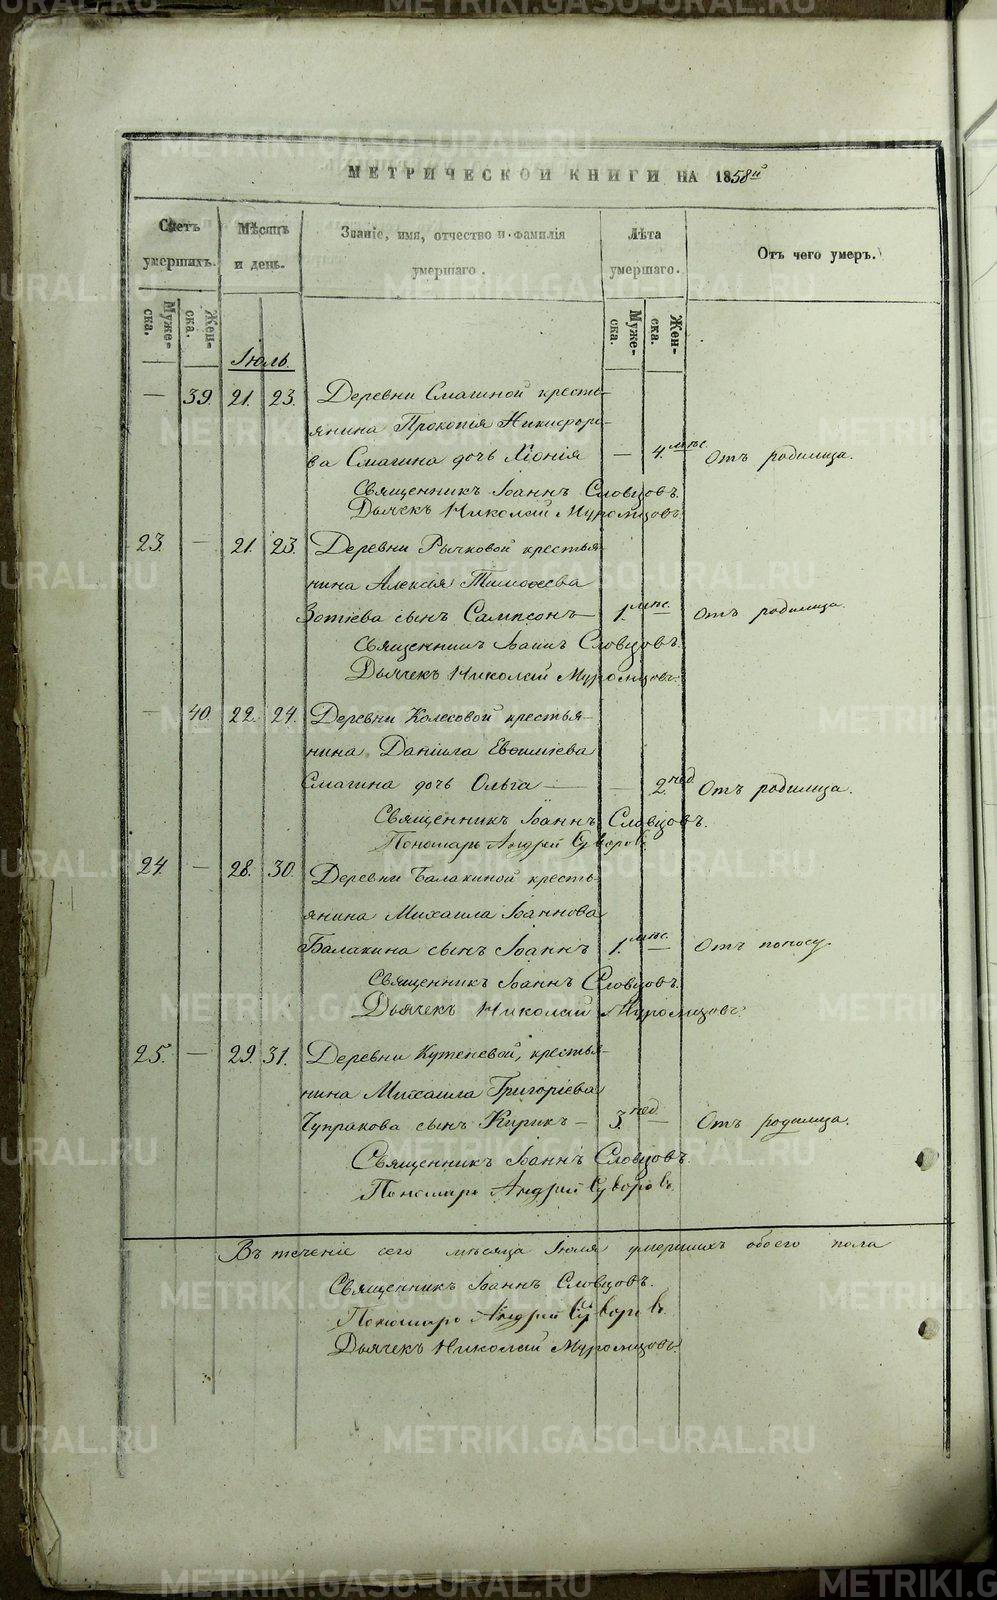 МЕТРИЧЕСКОЙ КНИГИ НА 1858й
Счетъ умершихъ.
Мѣсяцъ и день.
Званіе, имя, отчество и фамилія умершаго.
Лѣта умершаго.
Отъ чего умеръ.
Муже-ска.
Жен-ска.
Муже-ска.
Жен-ска.
Іюль.
— 39. 21. 23. Деревни Смагиной кресть-
янина Прокопія Никифоро-
ва Смагина дочь Хіонія — 4. мѣс. Отъ родимца.
Священникъ Іоаннъ Словцовъ.
Дьячекъ Николай Муромцовъ.
23. — 21. 23. Деревни Рычковой крестья-
нина Алексія Тимофеева
Зотіева сынъ Сампсонъ — 1. мѣс. — Отъ родимца.
Священникъ Іоаннъ Словцовъ.
Дьячекъ Николай Муромцовъ.
— 40. 22. 24. Деревни Колесовой крестья-
нина Даніила Евфиміева
Смагина дочь Ольга — — 2. нед Отъ родимца.
Священникъ Іоаннъ Словцовъ.
Пономарь Андрей Суворовъ
24. — 28. 30. Деревни Балакиной кресть-
янина Михаила Іоаннова
Балакина сынъ Іоаннъ 1. мѣс. — Отъ поносу.
Священникъ Іоаннъ Словцовъ.
Дьячекъ Николай Муромцовъ.
25. — 29. 31. Деревни Кутеневой, крестья-
нина Михаила Григоріева
Чупракова сынъ Кирикъ — 3. нед — Отъ родимца.
Священникъ Іоаннъ Словцовъ.
Пономарь Андрей Суворовъ.
Въ теченіе сего мѣсяца Іюля умершихъ обоего пола
Священникъ Іоаннъ Словцовъ.
Пономарь Андрей Суворовъ.
Дьячекъ Николай Муромцовъ.
METRIKI.GASO-URAL.RU